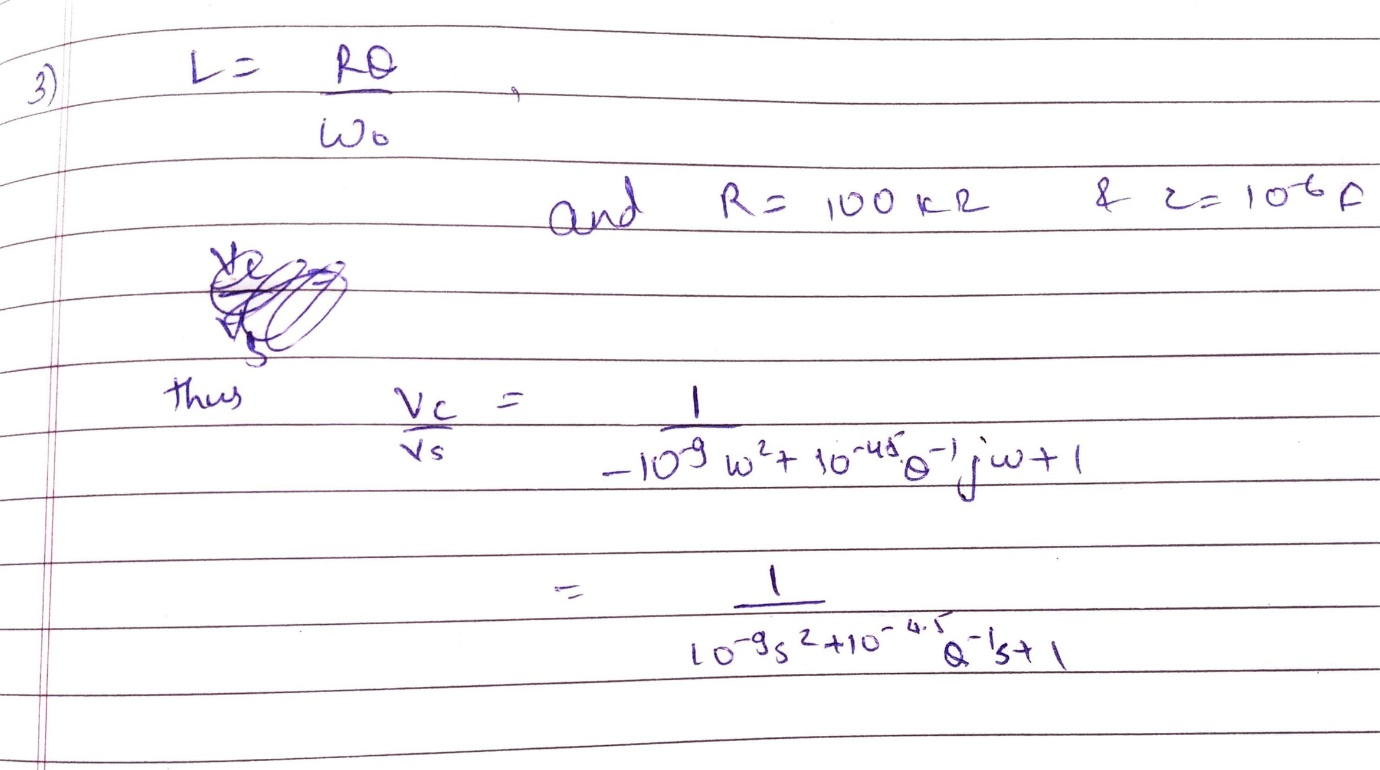 3) L = RQ / ω₀ ,
and R = 100 KΩ & C = 10⁻⁶ F
thus Vc / Vs = 1 / -10⁻⁹ ω² + 10⁻⁴·⁵ Q⁻¹ jω + 1
= 1 / 10⁻⁹ s² + 10⁻⁴·⁵ Q⁻¹ s + 1